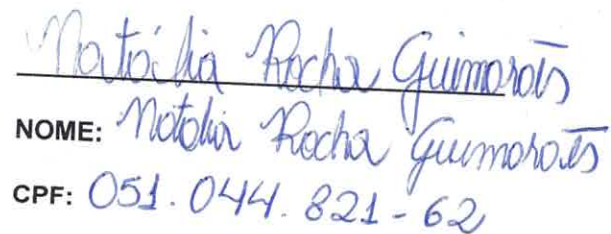 Natália Rocha Guimarães
NOME: Natalia Rocha Guimarães
CPF: 051.044.821-62